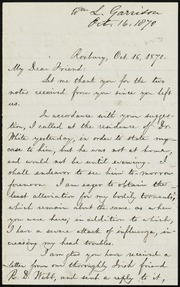 Wm L. Garrison
Oct. 16, 1870
Roxbury, Oct. 16, 1870.
My Dear Friend:
Let me thank you for the two
notes received from you since you left
us.
In accordance with your sugges-
tion, I called at the residence of Dr.
White yesterday, in order to state my
case to him, but he was not at home,
and would not be until evening. I
shall endeavor to see him to-morrow
forenoon. I am eager to obtain the
least alleviation for my bodily torments,
which remain about the same as when
you were here, in addition to which,
I have a severe attack of influenza, in-
creasing my head troubles.
I am glad you have received a
letter from our thoroughly Irish friend
R. D. Webb, and sent a reply to it,